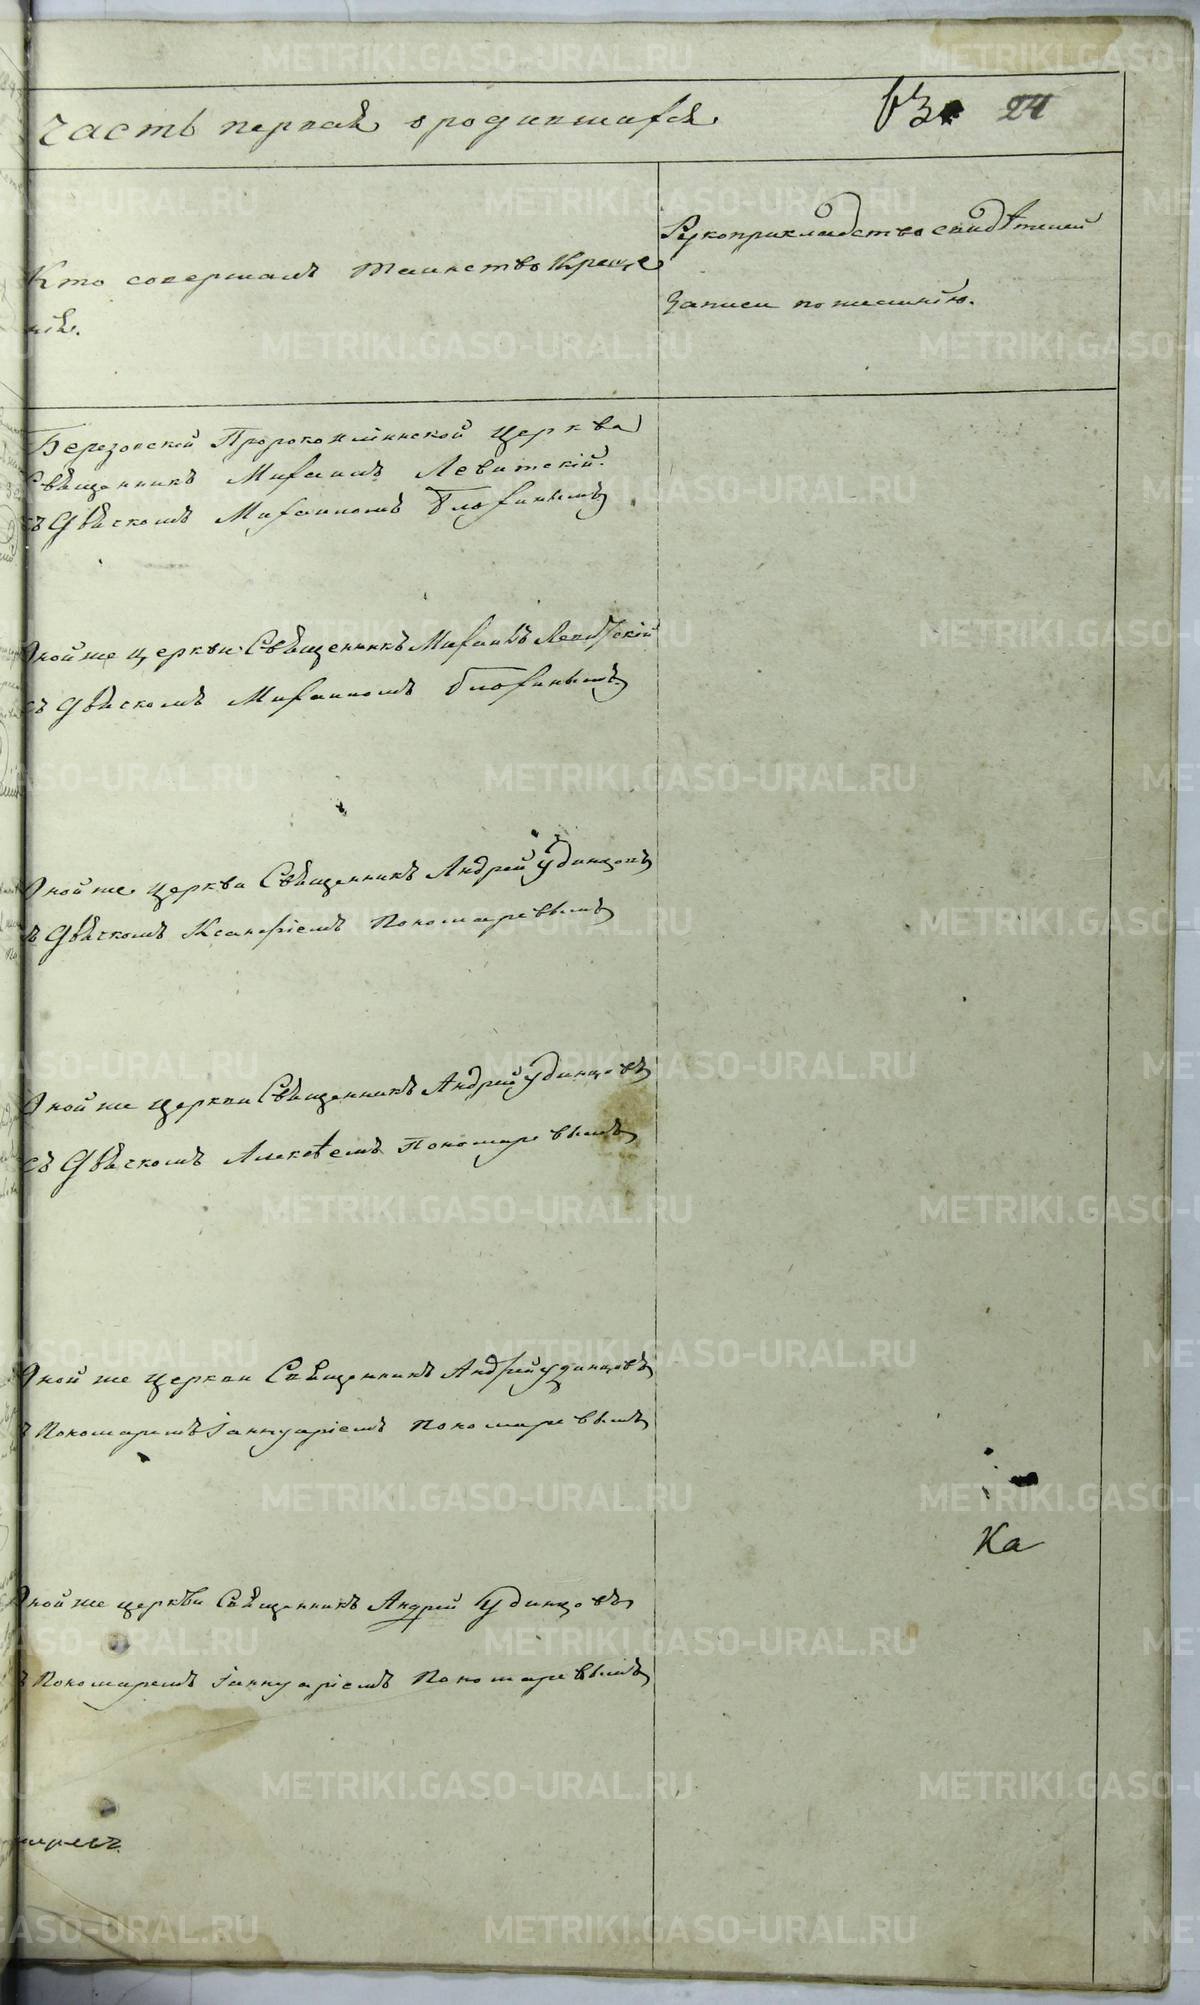 Часть первая о родившихся 24
Кто совершалъ таинство Креще
нія.
Рукоприкладство свидѣтелей
записи по желанію.
Березовской Пророкоилiинской церкви
Священникъ Михаилъ Левитскій
съ Дьячкомъ Михаиломъ Блохинымъ
Оной же церкви Священникъ Михаилъ Левитскій
съ Дьячкомъ Михаиломъ Блохинымъ
Оной же церкви Священникъ Андрей Удинцовъ
съ Дьячкомъ Ксанфіемъ Пономаревымъ
Оной же церкви Священникъ Андрей Удинцовъ
съ Дьячкомъ Алексѣемъ Пономаревымъ
Оной же церкви Священникъ Андрей Удинцовъ
съ Пономаремъ Іаннуаріемъ Пономаревымъ
Ка
Оной же церкви Священникъ Андрей Удинцовъ
съ Пономаремъ Іаннуаріемъ Пономаревымъ
METRIKI.GASO-URAL.RU